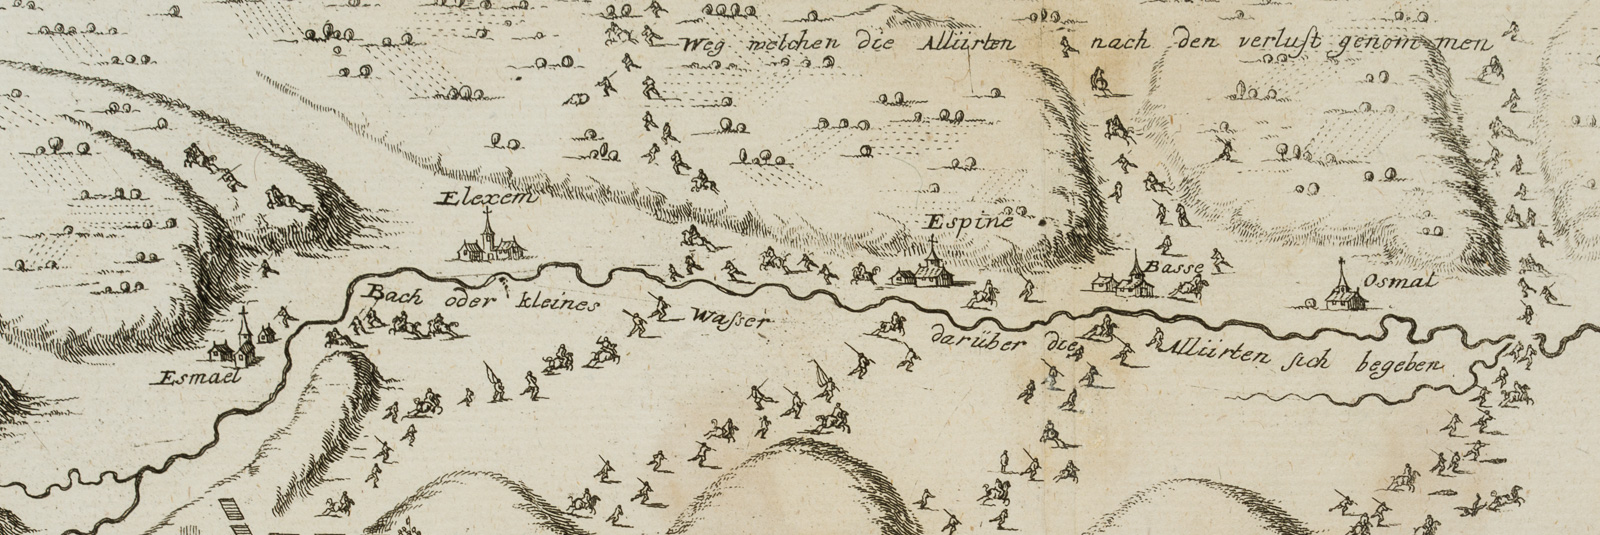 Weg welchen die Alliirten nach den verlust genommen
Elexem
Espine
Basse
Osmal
Bach oder kleines Wasser darüber die Alliirten sich begeben
Esmael